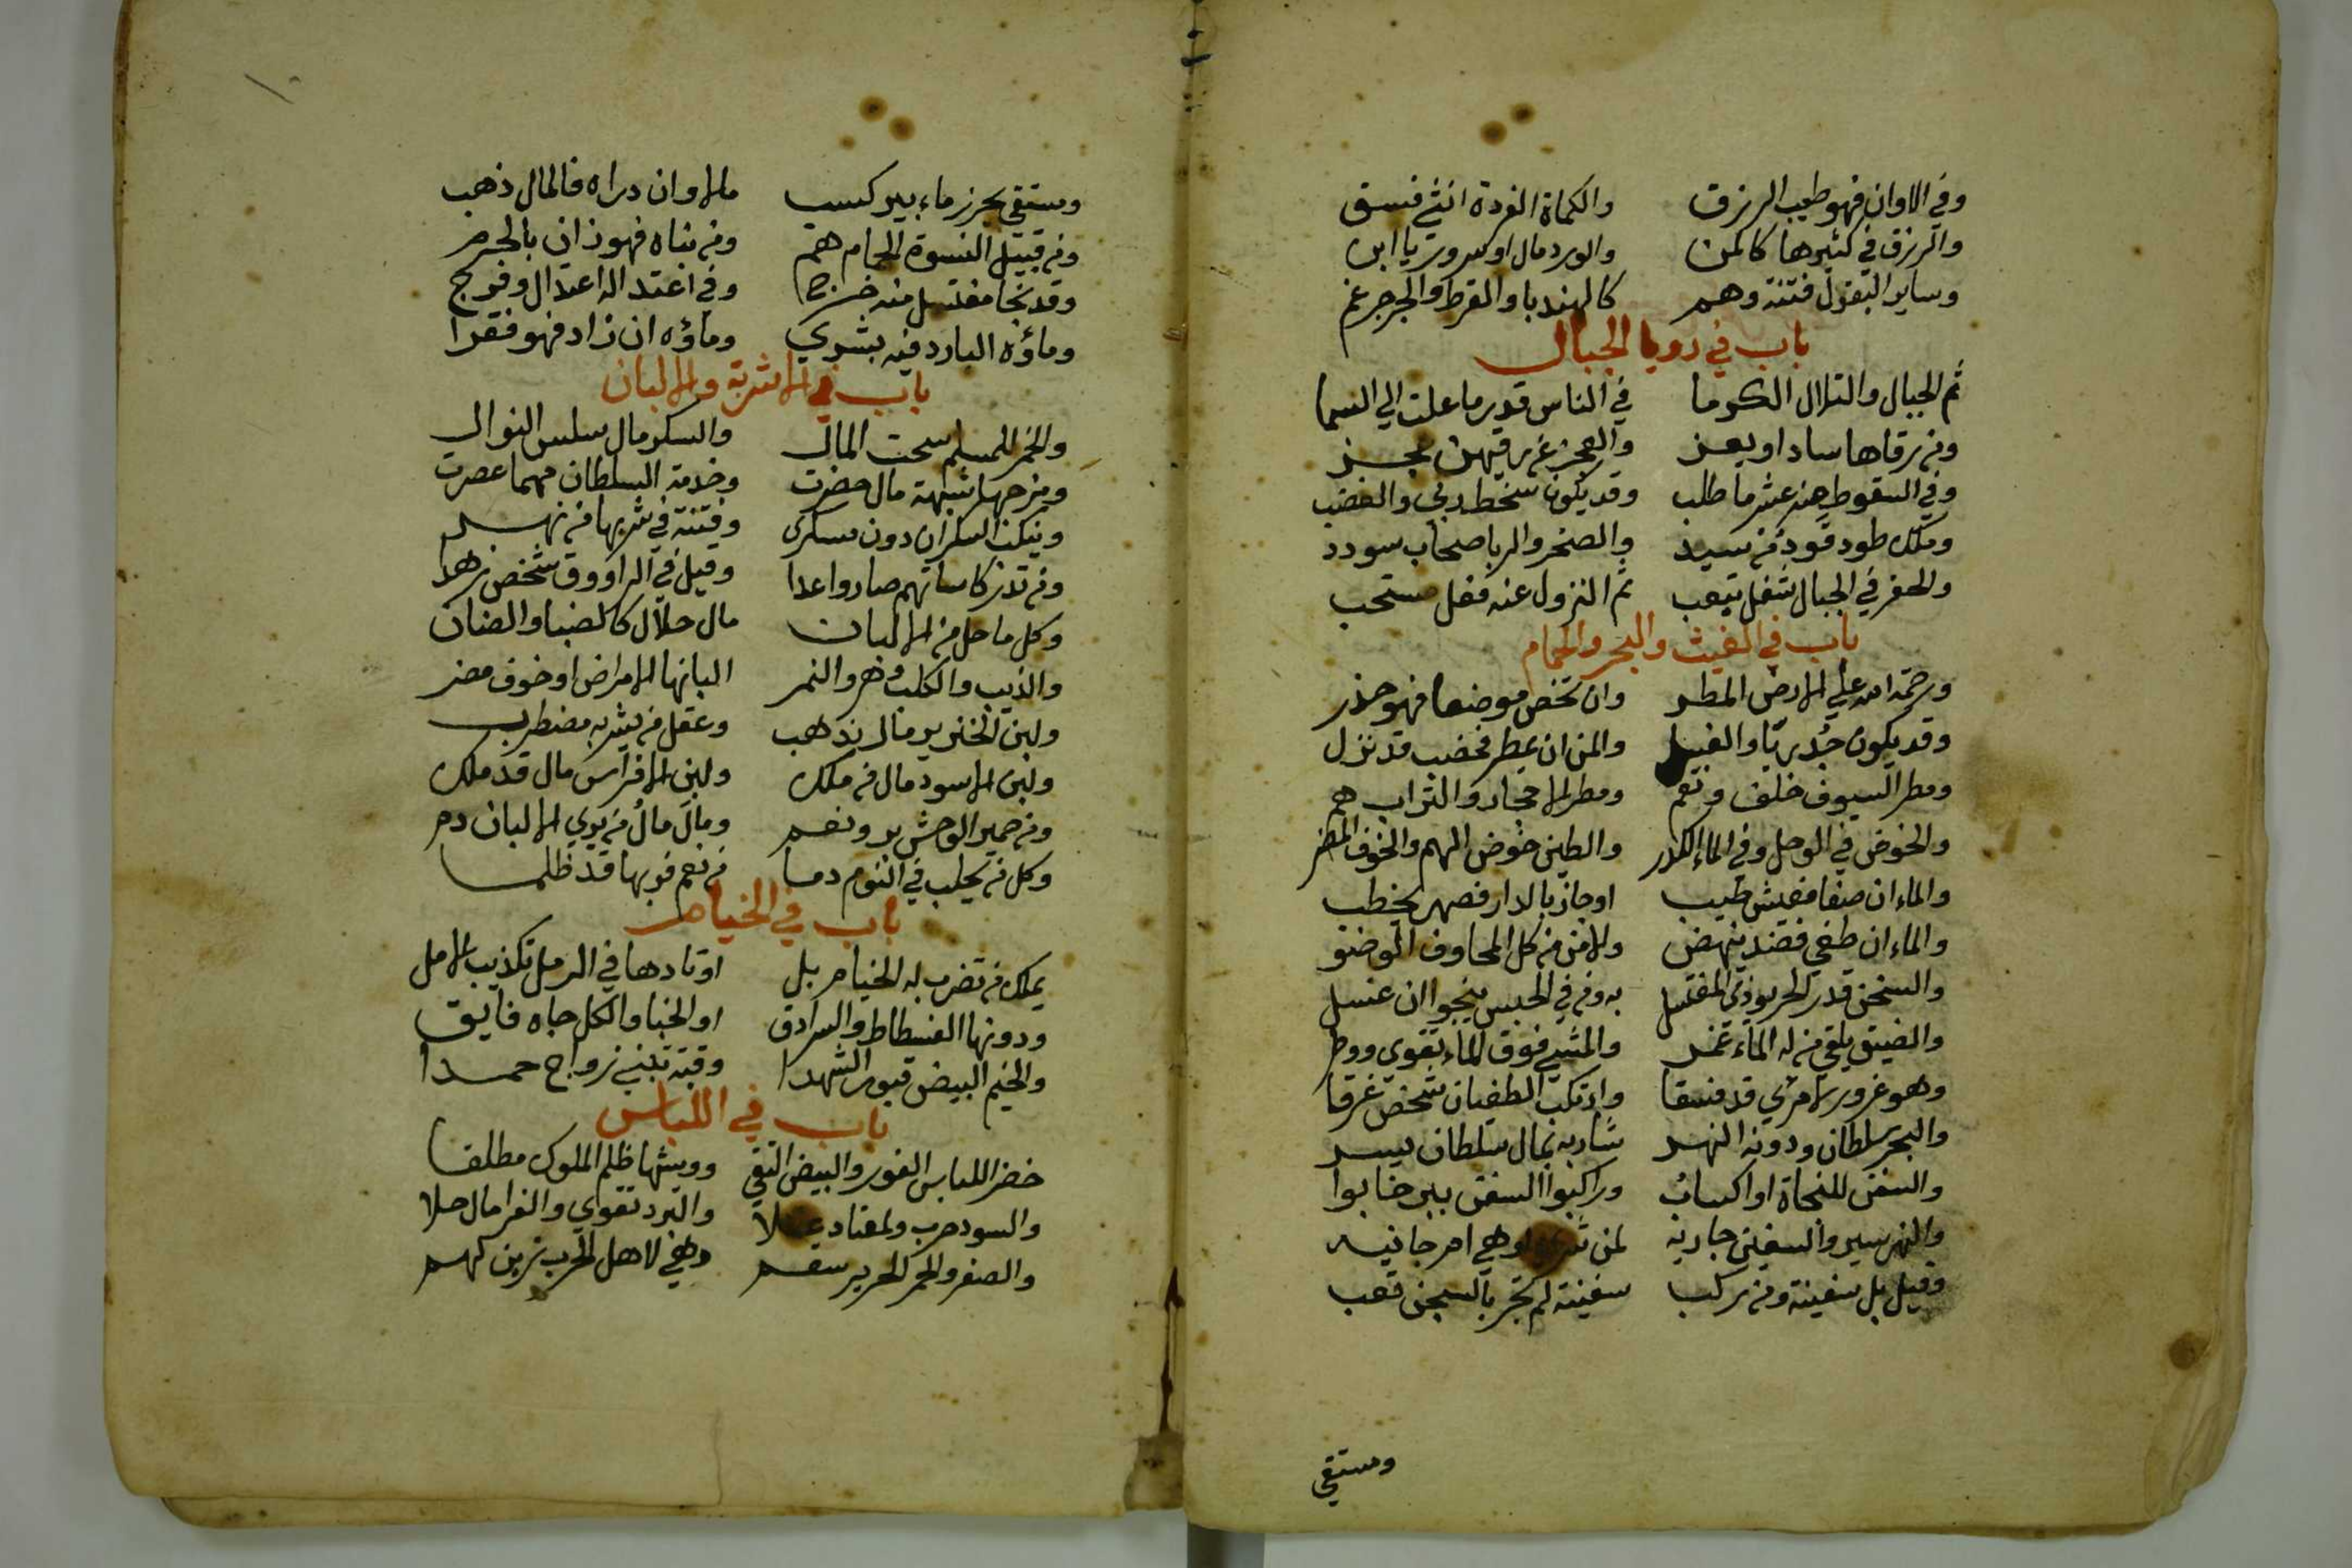 وفي الاوان فهو طيب الرزق والكماة الفردة انثي فسق
والرزق في كثيرها كالمن والورد مال او سرور يا ابن
وساير البقول فتنة وهم كالهندبا والقرط والجرجر غم
باب في رويا الجبال
ثم الجبال والتلال الكوما في الناس قدير ما علت الي السما
ومن رقاها ساد او يعز والعجز عن رقيهن عجز
وفي السقوط عنه عشر ما طلب وقد يكون سخط ربي والغضب
وملك طود قود من سيد والصخر والربا صحاب سودد
والحفر في الجبال شغل يتعب ثم النزول عنه فعل مستحب
باب في الغيث والبحر والحمام
ورحمة الله علي الارض المطر وان تخص موضعا فهو حذر
وقد يكون جدريا والغيل والمن ان يمطر فخصب قد نزل
ومطر السيوف خلف ونقم ومطر الاحجار والتراب هم
والخوض في الوحل وفي الماء الكدر والطين خوض الهم والخوف المضر
والماء ان صفا فعيش طيب او جاز بالدار فصهر يخطب
والماء ان طغي فضد ينهض والامن من كل المخاوف الوضو
والسخن قدر الحر يوذي المغتسل به ومن في الحبس ينجوا ان غسل
والضيق يلقي من له الماء غمر والمشي فوق الماء تقوي ووطر
وهو غرور لامري قد فسقا وارتكب الطغيان شخص غرقا
والبحر سلطان ودونه النهر شاربه بمال سلطان يسر
والسفن للنجاة او اكساب وراكبوا السفن ببر خابوا
والنهر سير والسفين جارية لمن وهي امر جانيه
وقيل بل سفينة ومن ركب سفينة لم تجر بالسجن تعب
ومستقي
ومستقي بحرز ماء بير كسب مالا وان دراه فالمال ذهب
ومن قبيل النسوة الحمام هم ومن بناه فهو زان بالحرم
وقد نجا مغتسل منه خرج وفي اعتداله اعتدال وفرج
وماؤه البارد فيه بشري وماؤه ان زاد فهو فقرا
باب في الاشربة والالبان
والخمر للمسلم سحت المال والسكر مال سلس النوال
ومزجها شبهة مال حضرت وخدمة السلطان مهما عصرت
وينكث السكران دون مسكر وفتنة في شربها من نهر
ومن تدر كاساتهم صاروا عدا وقيل في الراووق شخص زهدا
وكل ما حل من الالبان مال حلال كالضبا والضان
والذيب والكلب وهر والنمر البانها الامراض او خوف مضر
ولبن الخنزير مال يذهب وعقل من يشربه مضطرب
ولبن الاسود مال من ملك ولبن الافراس مال قد ملك
ومن حمير الوحش بر ونعم ومال مال من يوي الالبان دم
وكل من يحلب في النوم دما من نعم فربها قد ظلما
باب في الخيام
يملك من تضرب له الخيام بل اوتادها في الرمل تكذيب الامل
ودونها الفسطاط والسرادق او الخبا والكل جاه فايق
والخيم البيض قبور الشهدا وقبة تبني زواج حمدا
باب في اللباس
خضر اللباس الفور والبيض التقي وويشها ظلم الملوك مطلقا
والسود حرب ولمعتاد علا والبرد تقوي والفرا مال حلا
والصفر والحمر الحرير سقم وهي لاهل الحرب تزين لهم